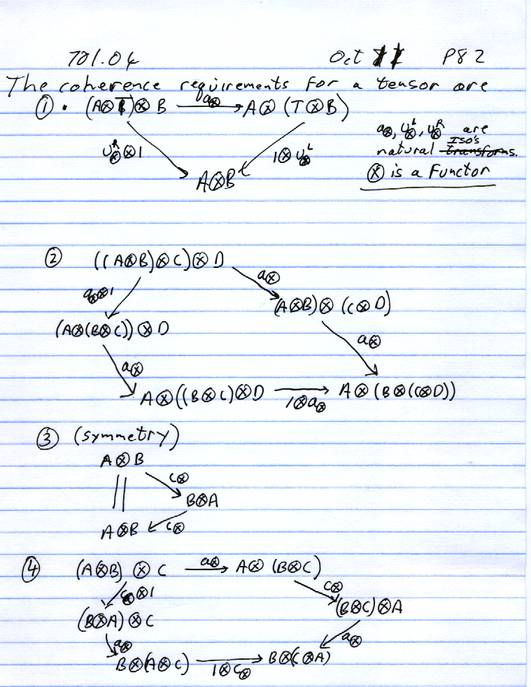 701.04 Oct 11 PG 2
The coherence requirements for a tensor are
① • (A⊗T)⊗B a⊗ A⊗(T⊗B)
a⊗, u⊗ᴸ, u⊗ᴿ are
u⊗ᴿ⊗1 1⊗u⊗ᴸ
natural Iso's transforms.
A⊗B
⊗ is a Functor
② ((A⊗B)⊗C)⊗D
a⊗⊗1 a⊗
(A⊗B)⊗(C⊗D)
(A⊗(B⊗C))⊗D
a⊗ a⊗
A⊗((B⊗C)⊗D 1⊗a⊗ A⊗(B⊗(C⊗D))
③ (symmetry)
A⊗B
c⊗
B⊗A
A⊗B c⊗
④ (A⊗B)⊗C a⊗ A⊗(B⊗C)
c⊗⊗1 c⊗
(B⊗A)⊗C (B⊗C)⊗A
a⊗ a⊗
B⊗(A⊗C) 1⊗c⊗ B⊗(C⊗A)